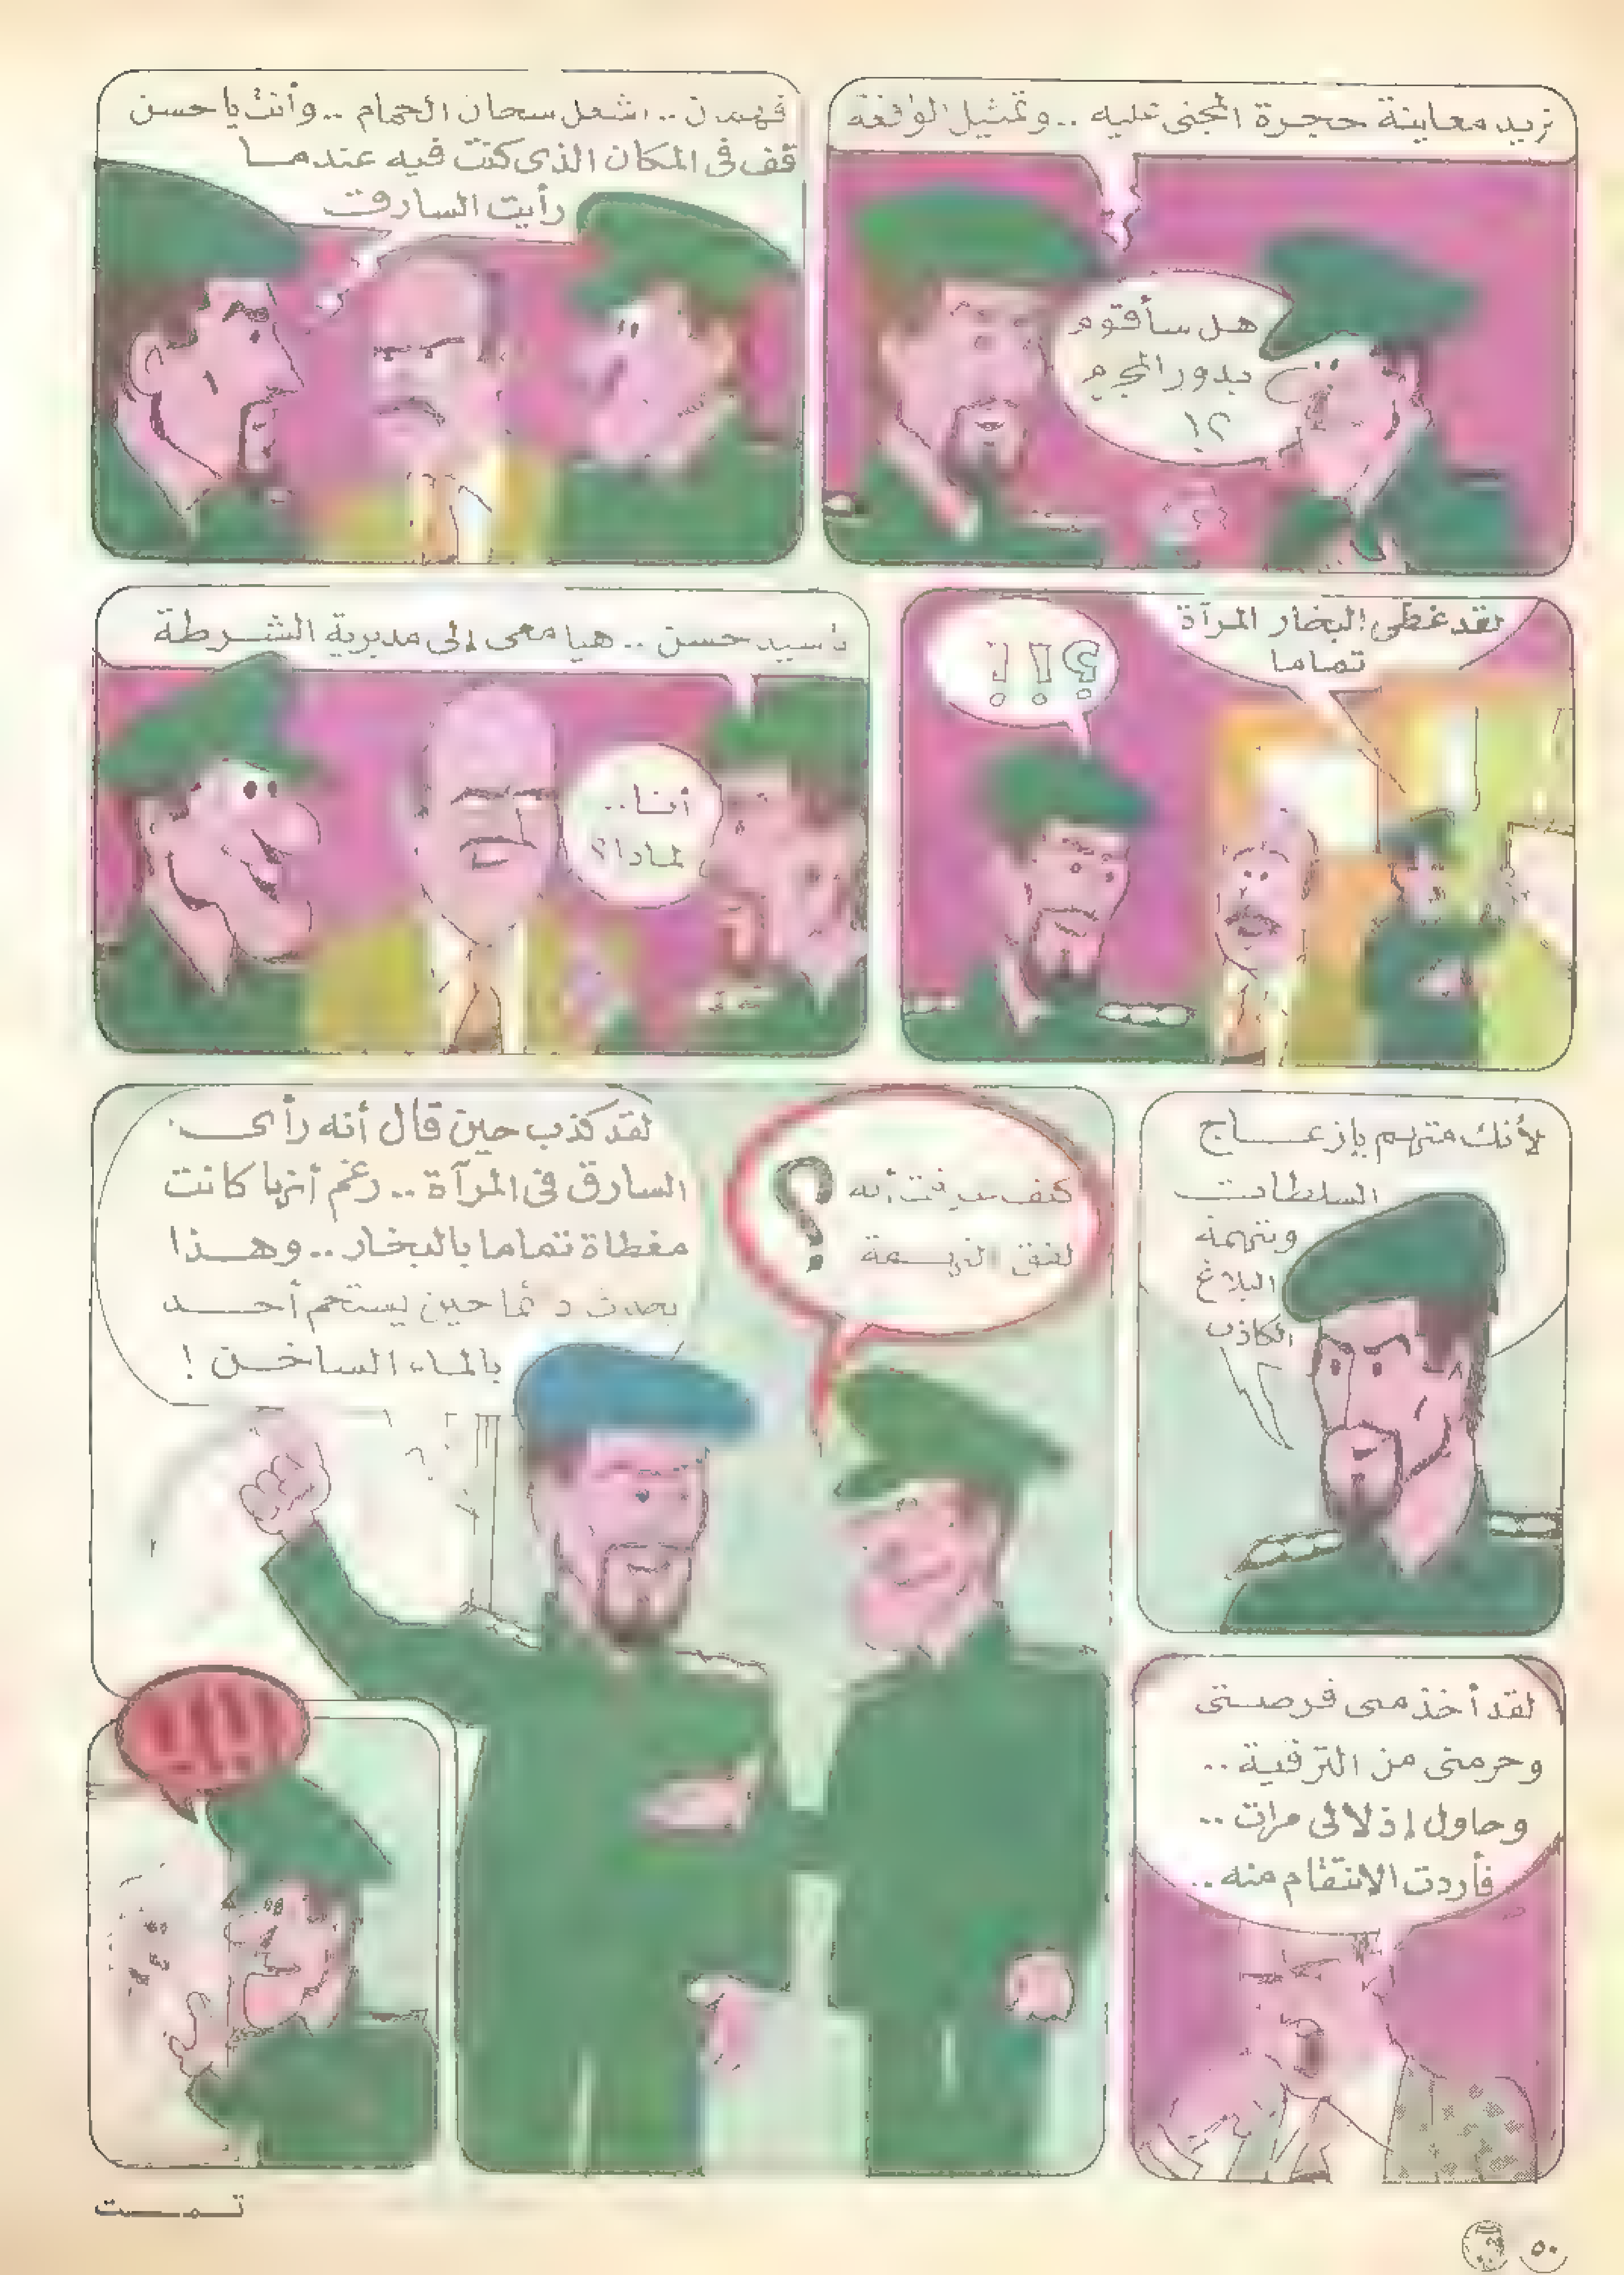 نريد معاينة حجرة المجنى عليه .. وتمثيل الواقعة
هل سأقوم
بدور المجرم
؟!
فهمان .. اشعل سخان الحمام .. وأنت يا حسن
قف فى المكان الذى كنت فيه عندما
رأيت السارق
لقد غطى البخار المرآة
تماما
؟!!
يا سيد حسن .. هيا معى إلى مديرية الشرطة
أنا ..
لماذا؟
لأنك متهم بإزعاج
السلطات
وتهمة
البلاغ
الكاذب
لقد أخذ منى فرصتى
وحرمنى من الترقية ..
وحاول إذلالى مرات ..
فأردت الانتقام منه ..
كيف عرفت أنه
لفق التهمة
؟
لقد كذب حين قال أنه رأى
السارق فى المرآة .. رغم أنها كانت
مغطاة تماما بالبخار .. وهذا
يحدث دائما حين يستحم أحد
بالماء الساخن !
تمت
٥٠